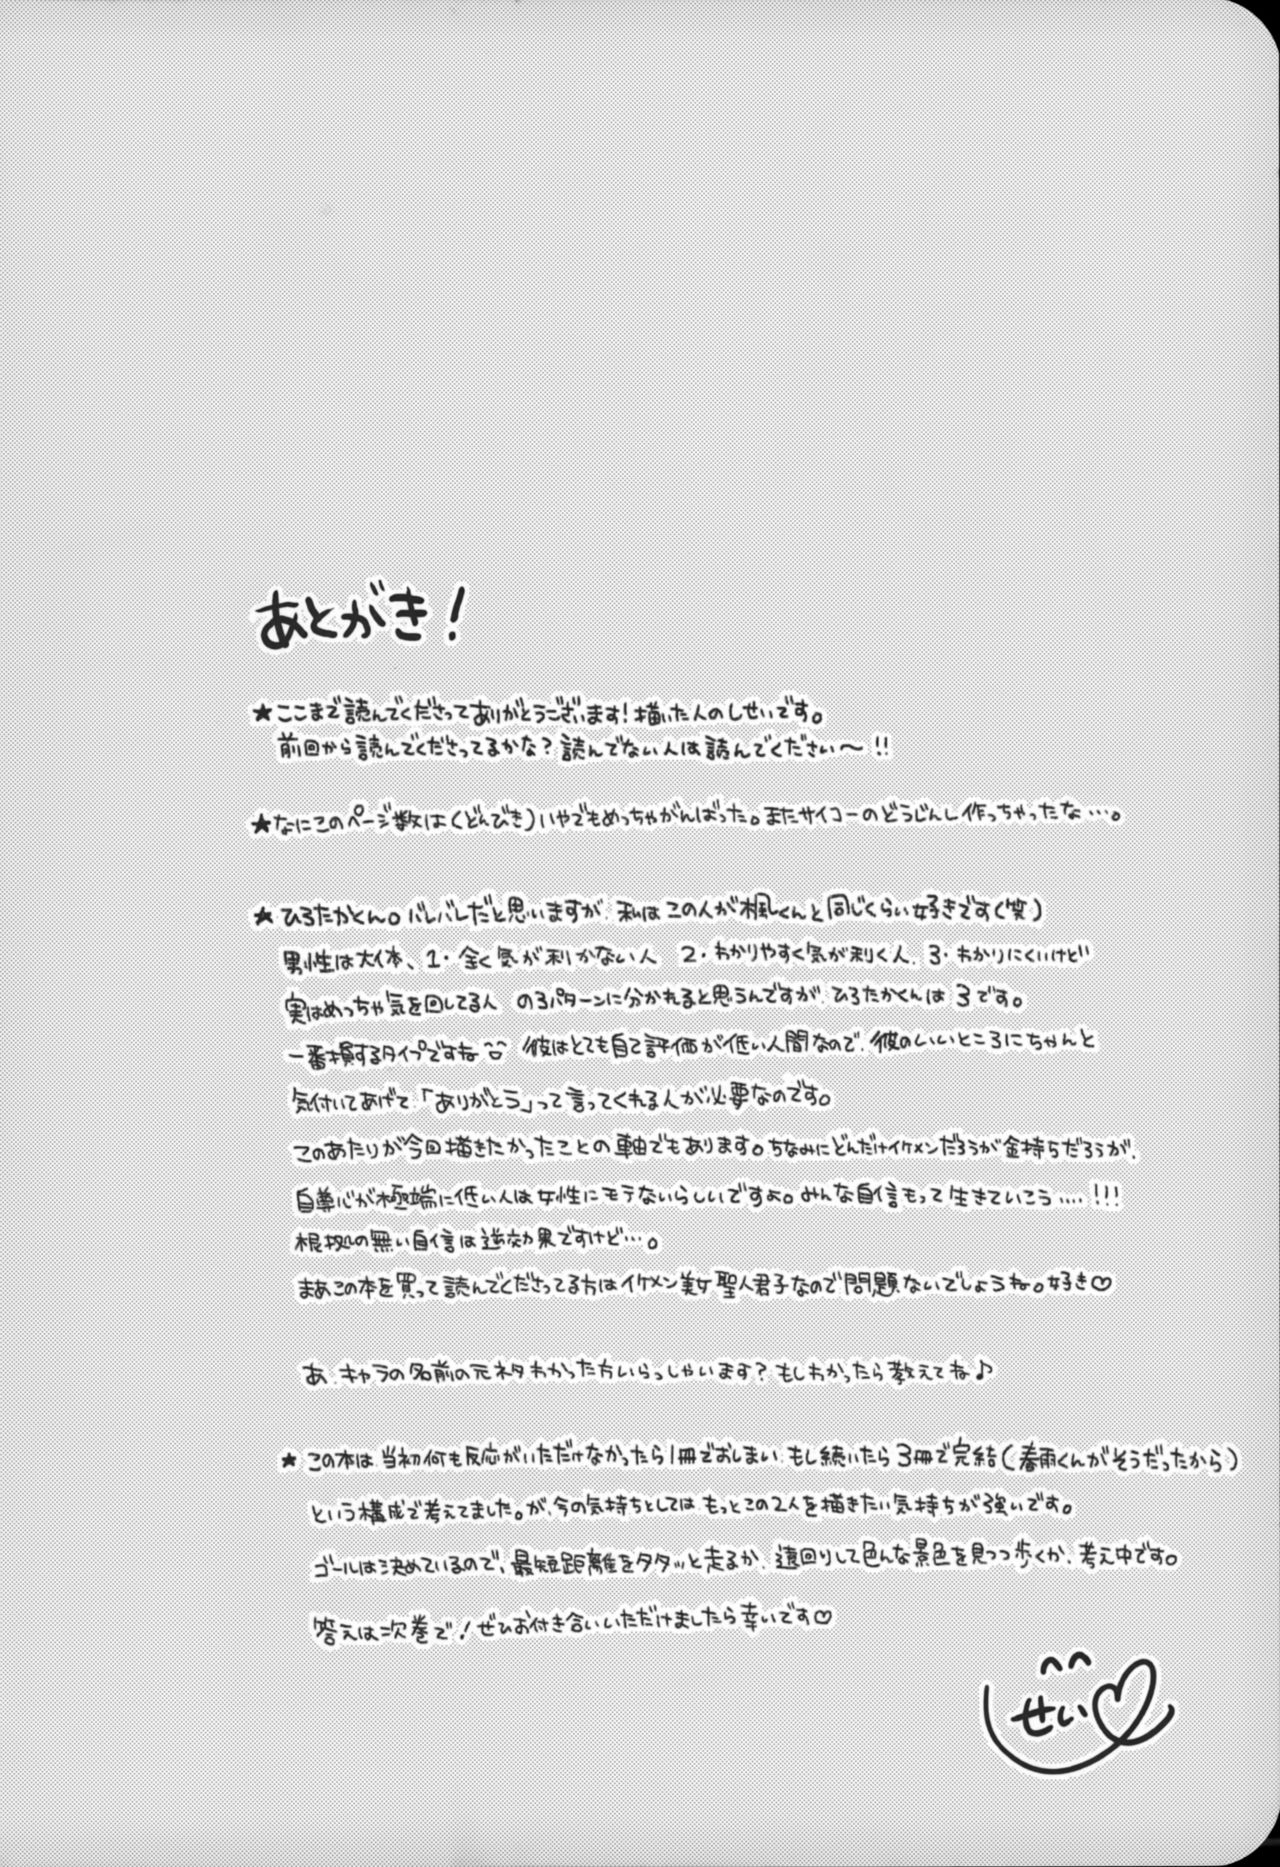 あとがき!
★ここまで読んでくださってありがとうございます!描いた人のしせいです。
前回から読んでくださってるかな?読んでない人は読んでください〜!!
★なにこのページ数は(どんびき)いやでもめっちゃがんばった。またサイコーのどうじんし作っちゃったな…。
★ひろたかくん。バレバレだと思いますが、私はこの人が楓くんと同じくらい好きです(笑)
男性は大体、1・全く気が利かない人 2・わかりやすく気が利く人、3・わかりにくいけど
実はめっちゃ気を回してる人 の3パターンに分かれると思うんですが、ひろたかくんは3です。
一番損するタイプですね 彼はとても自己評価が低い人間なので、彼のいいところにちゃんと
気付いてあげて、「ありがとう」って言ってくれる人が必要なのです。
このあたりが今回描きたかったことの軸でもあります。ちなみにどんだけイケメンだろうが金持ちだろうが、
自尊心が極端に低い人は女性にモテないらしいですよ。みんな自信もって生きていこう….!!!
根拠の無い自信は逆効果ですけど…。
まあこの本を買って読んでくださってる方はイケメン美女聖人君子なので問題ないでしょうね。好き♡
あ、キャラの名前の元ネタわかった方いらっしゃいます?もしわかったら教えてね♪
★この本は、当初何も反応がいただけなかったら1冊でおしまい、もし続いたら3冊で完結(春雨くんがそうだったから)
という構成で考えてました。が、今の気持ちとしてはもっとこの2人を描きたい気持ちが強いです。
ゴールは決めているので、最短距離をタタッと走るか、遠回りして色んな景色を見つつ歩くか、考え中です。
答えは次巻で!ぜひお付き合いいただけましたら幸いです♡
せい♡